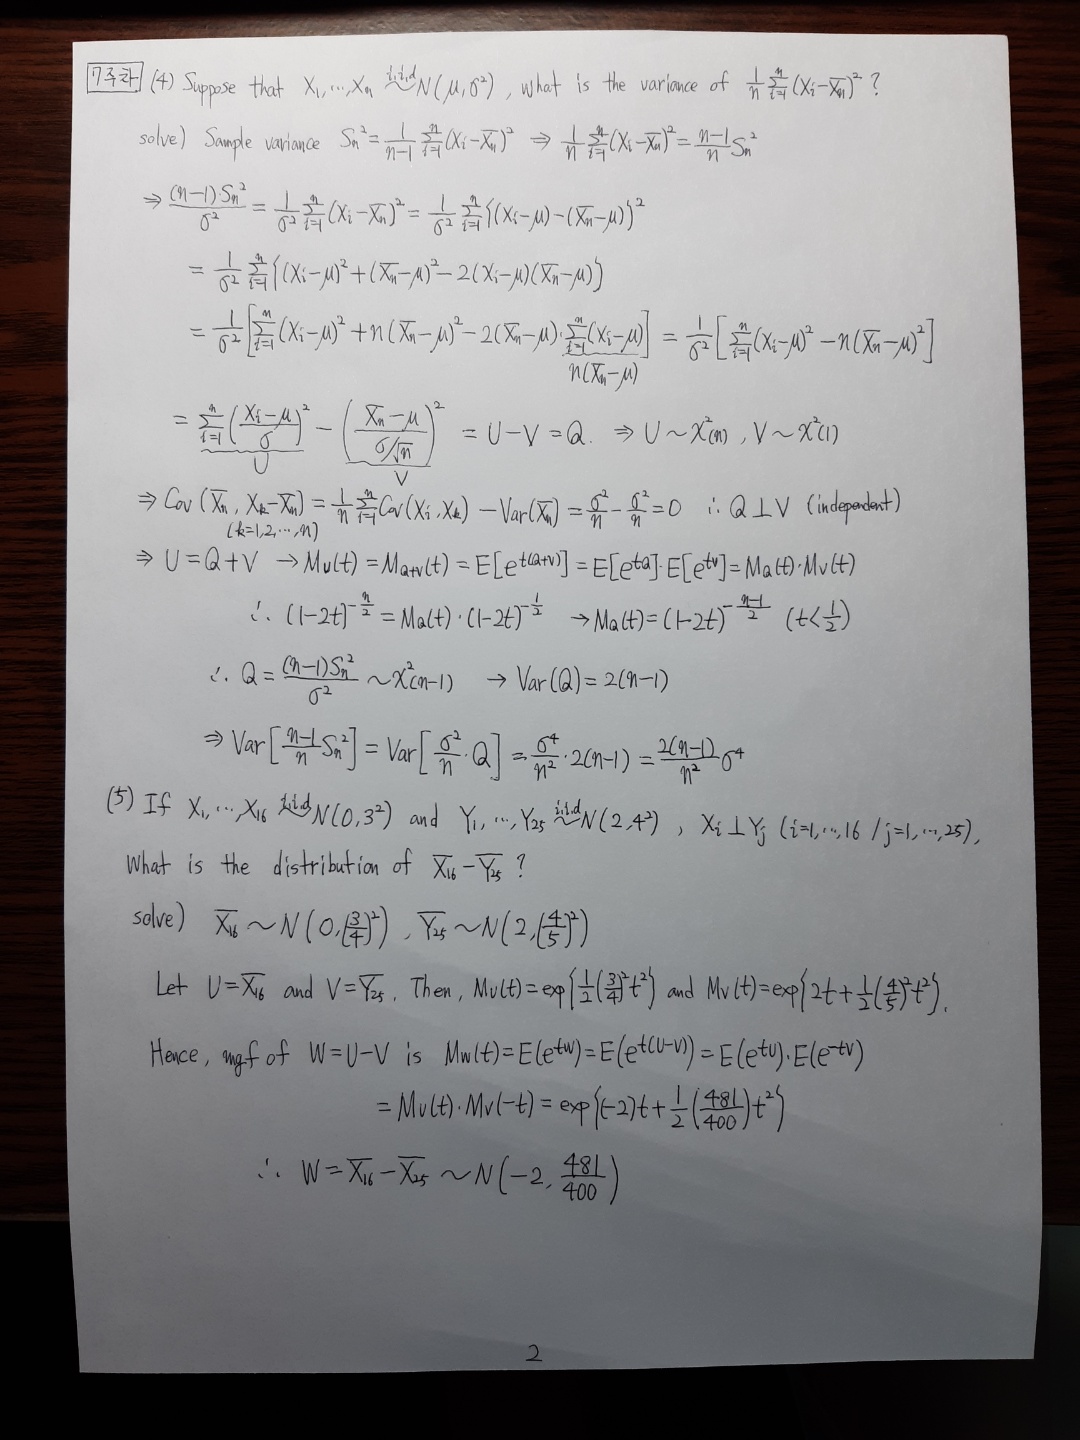 7주차 (4) Suppose that X₁,⋯,Xₙ i.i.d ~ N(μ,σ²), what is the variance of 1/n Σᵢ₌₁ⁿ (Xᵢ−X̄ₙ)² ?
solve) Sample variance Sₙ² = 1/(n−1) Σᵢ₌₁ⁿ (Xᵢ−X̄ₙ)² ⇒ 1/n Σᵢ₌₁ⁿ (Xᵢ−X̄ₙ)² = (n−1)/n Sₙ²
⇒ (n−1)·Sₙ²/σ² = 1/σ² Σᵢ₌₁ⁿ (Xᵢ−X̄ₙ)² = 1/σ² Σᵢ₌₁ⁿ {(Xᵢ−μ)−(X̄ₙ−μ)}²
= 1/σ² Σᵢ₌₁ⁿ {(Xᵢ−μ)²+(X̄ₙ−μ)²−2(Xᵢ−μ)(X̄ₙ−μ)}
= 1/σ² [Σᵢ₌₁ⁿ (Xᵢ−μ)²+n(X̄ₙ−μ)²−2(X̄ₙ−μ)·Σᵢ₌₁ⁿ (Xᵢ−μ)] = 1/σ² [Σᵢ₌₁ⁿ (Xᵢ−μ)²−n(X̄ₙ−μ)²]
n(X̄ₙ−μ)
= Σᵢ₌₁ⁿ ((Xᵢ−μ)/σ)² − ((X̄ₙ−μ)/(σ/√n))² = U−V = Q. ⇒ U~χ²(n), V~χ²(1)
U V
⇒ Cov(X̄ₙ, Xₖ−X̄ₙ) = 1/n Σᵢ₌₁ⁿ Cov(Xᵢ,Xₖ) − Var(X̄ₙ) = σ²/n − σ²/n = 0 ∴ Q⊥V (independent)
(k=1,2,⋯,n)
⇒ U=Q+V → M_U(t) = M_Q+V(t) = E[e^t(Q+V)] = E[e^tQ]·E[e^tV] = M_Q(t)·M_V(t)
∴ (1−2t)^(−n/2) = M_Q(t)·(1−2t)^(−1/2) → M_Q(t) = (1−2t)^(−(n−1)/2) (t<1/2)
∴ Q = (n−1)Sₙ²/σ² ~ χ²(n−1) → Var(Q) = 2(n−1)
⇒ Var[(n−1)/n Sₙ²] = Var[σ²/n · Q] = σ⁴/n² · 2(n−1) = 2(n−1)/n² σ⁴
(5) If X₁,⋯,X₁₆ i.i.d ~ N(0,3²) and Y₁,⋯,Y₂₅ i.i.d ~ N(2,4²), Xᵢ⊥Yⱼ (i=1,⋯,16 / j=1,⋯,25),
What is the distribution of X̄₁₆−Ȳ₂₅ ?
solve) X̄₁₆ ~ N(0,(3/4)²), Ȳ₂₅ ~ N(2,(4/5)²)
Let U=X̄₁₆ and V=Ȳ₂₅. Then, M_U(t) = exp{1/2(3/4)²t²} and M_V(t) = exp{2t+1/2(4/5)²t²}.
Hence, mgf of W=U−V is M_W(t) = E(e^tW) = E(e^t(U−V)) = E(e^tU)·E(e^−tV)
= M_U(t)·M_V(−t) = exp{(−2)t+1/2(481/400)t²}
∴ W = X̄₁₆−X̄₂₅ ~ N(−2, 481/400)
2